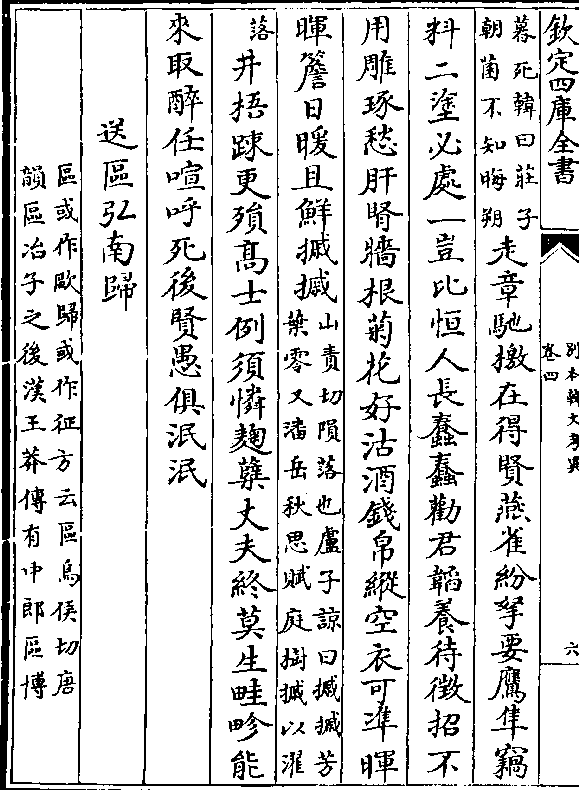 欽定四庫全書
別本韓文考異
卷四
六
暮死韓曰莊子
朝菌不知晦朔
走章馳檄在得賢燕雀紛拏要鷹隼竊
料二塗必處一豈比恒人長蠢蠢勸君韜養待徵招不
用雕琢愁肝腎牆根菊花好沽酒錢帛縱空衣可準暉
暉簷日暖且鮮摵摵
山責切隕落也盧子諒曰摵摵芳
葉零又潘岳秋思賦庭樹摵以灑
落
井梧踈更殞高士例須憐麴蘖丈夫終莫生畦畛能
來取醉任喧呼死後賢愚俱泯泯
送區弘南歸
區或作歐歸或作征方云區烏侯切唐
韻區冶子之後漢王莽傳有中郎區博